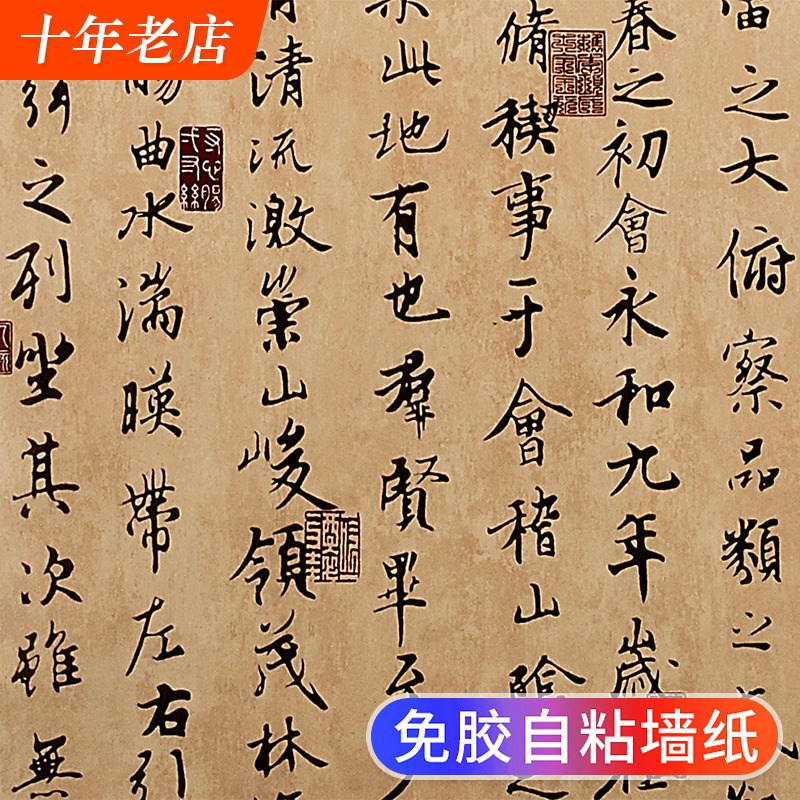 十年老店
宙之大俯察品類之
春之初會永和九年歲
脩稧事于會稽山陰之
此地有也羣賢畢至
清流激崇山峻領茂林
觴曲水湍暎帶左右引
之列坐其次雖無
免胶自粘墙纸